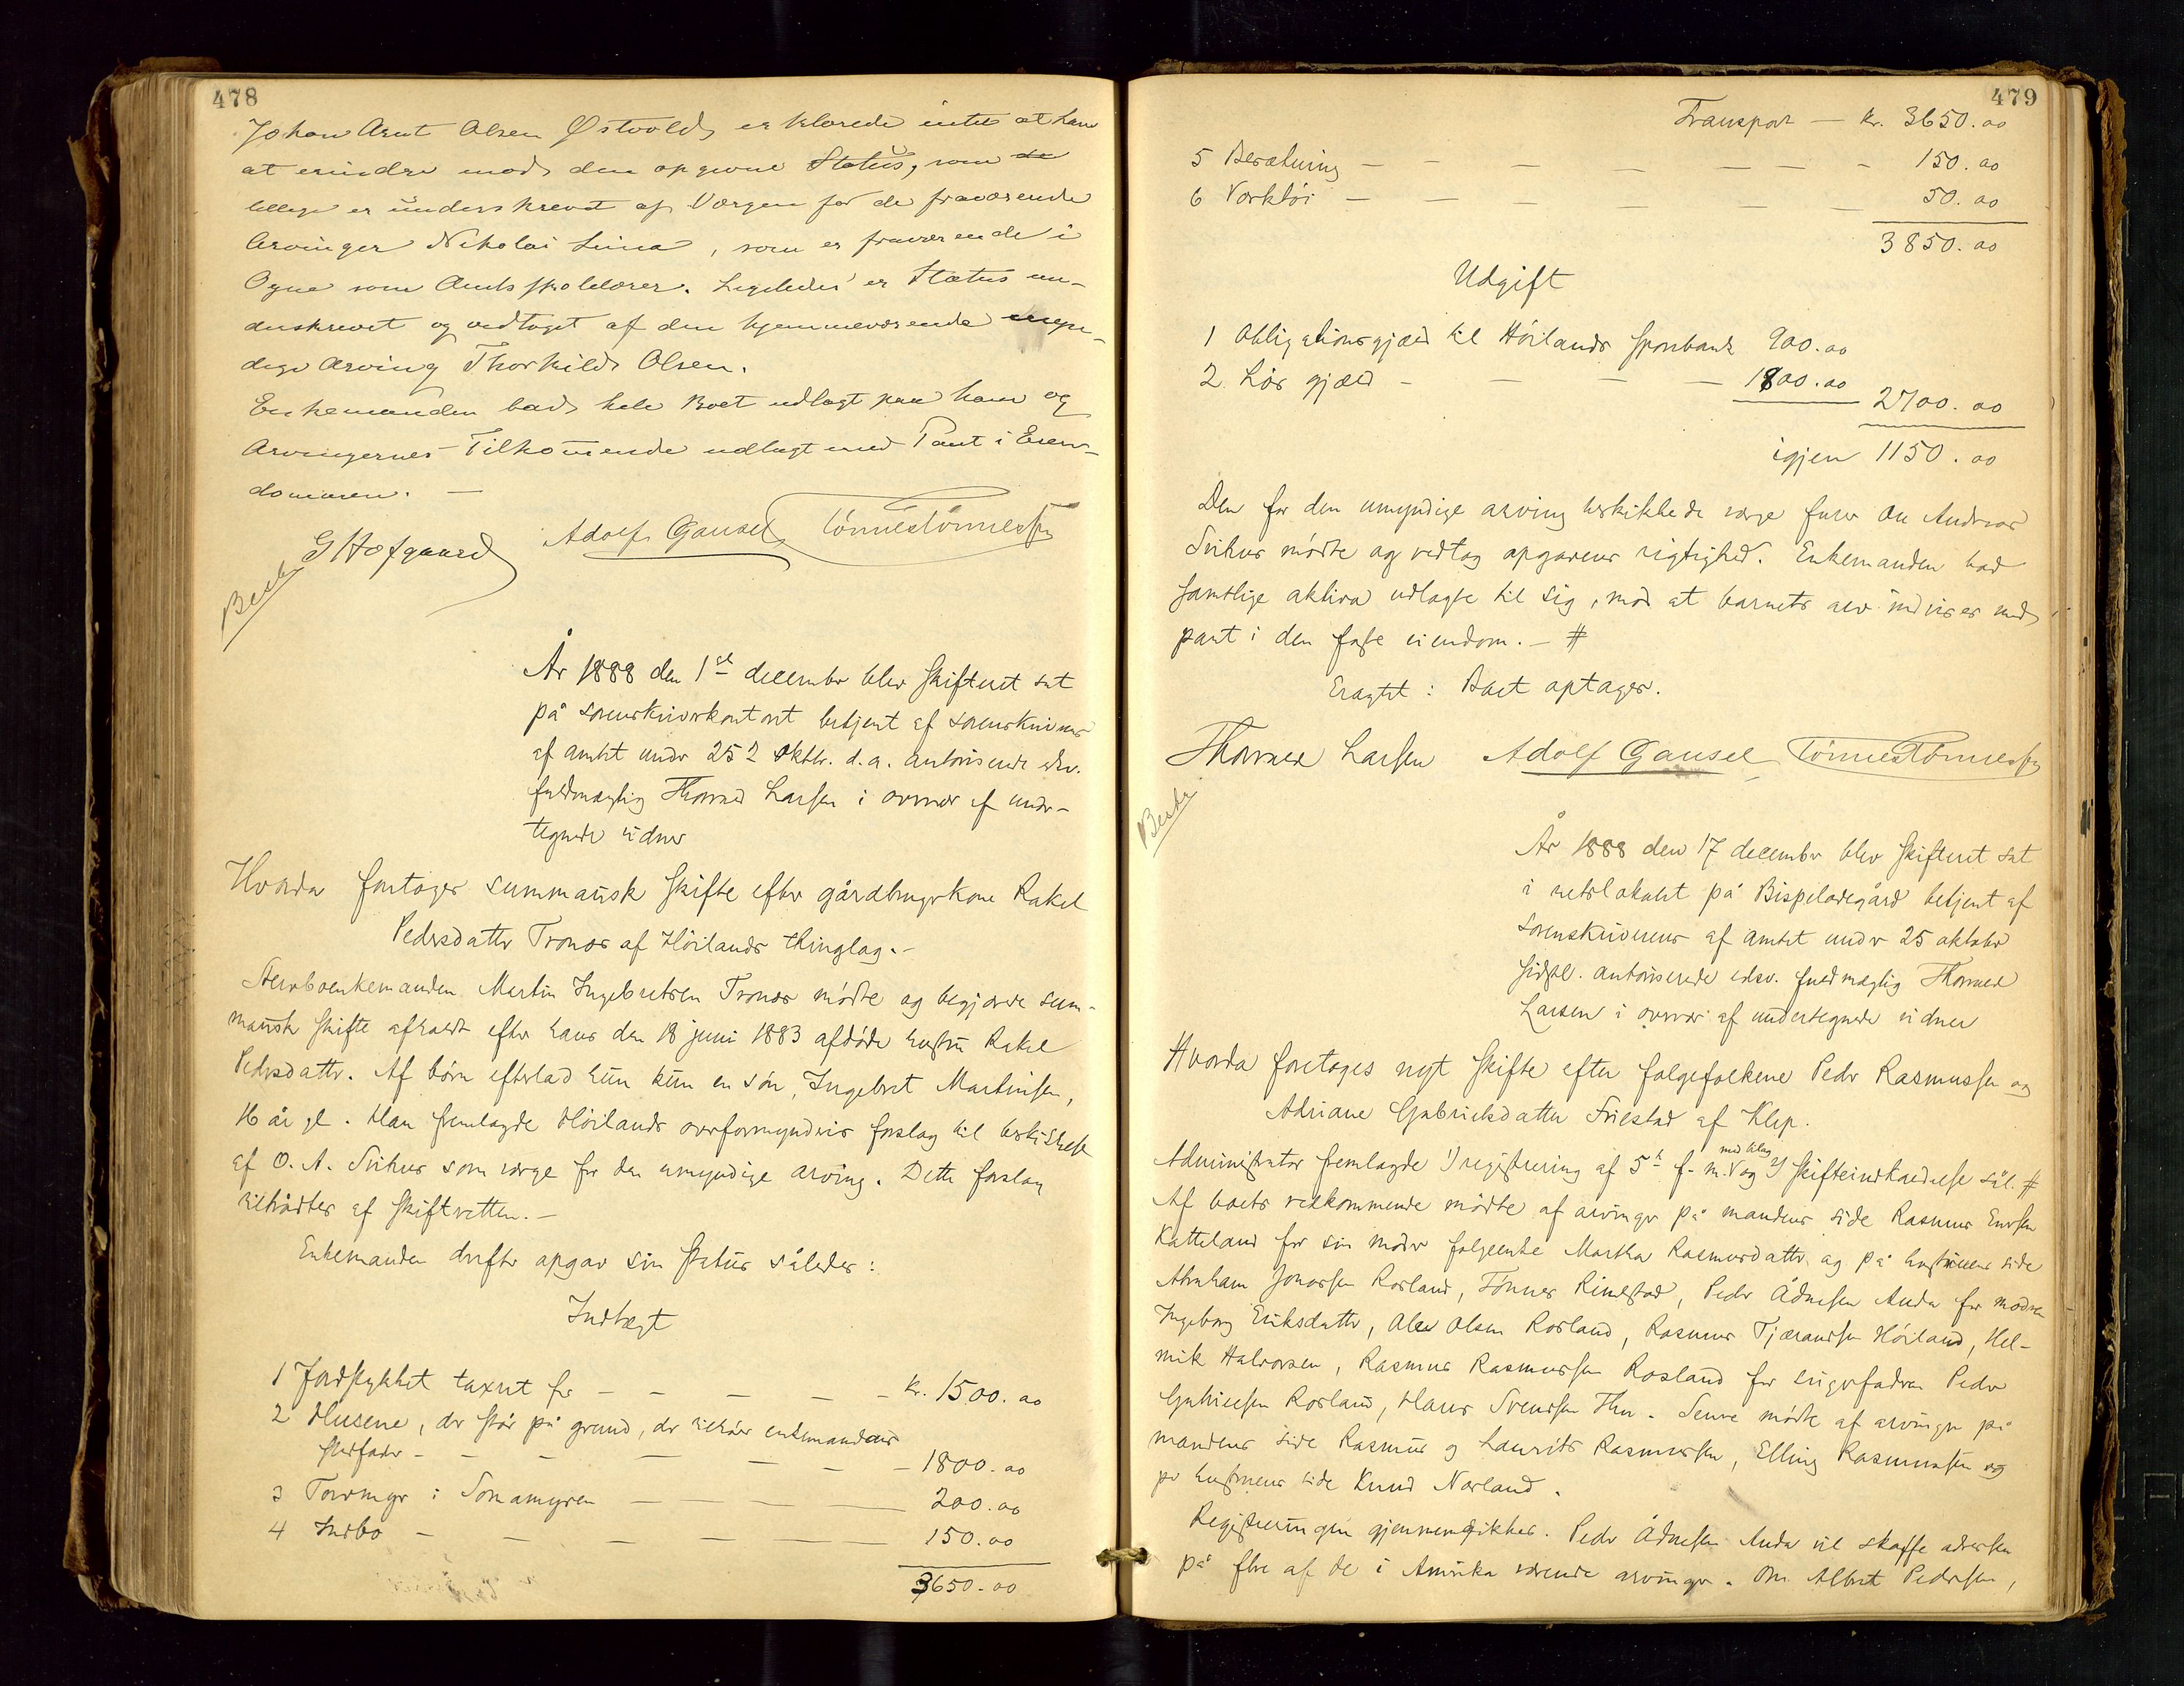 478
Johan Arnt Olsen Østvold, erklærede intet at have
at erindre mod den opgivne Status, som
tillige er underskrevet af Værgen for de fraværende
Arvinger Nikolai Lima, som er fraværende i
Ogne som Amtsskolelærer. Ligeledes er Status un-
derskrevet og vedtaget af den hjemmeværende myn-
dige Arving Thorkild Olsen.
Enkemanden bad hele Boet udlagt paa ham og
Arvingernes Tilkommende udlagt med Pant i Eien-
dommen. —
G Hofgaard Adolf Gausel Tönnes Tönnessen
År 1888 den 1st december blev skifteret sat
på sorenskriverkontoret betjent af sorenskriverens
af amtet under 25 oktbr. d.a. autoriserede edsv.
fuldmægtig Thorvald Larsen i overvær af under-
tegnede vidner
Hvorda foretoges summarisk skifte efter gårdbrugerkone Rakel
Pedersdatter Tronæs af Höilands thinglag. -
Stervboenkemanden Martin Ingebretsen Tronæs mödte og begjærede sum-
marisk skifte afholdt efter hans den 18 juni 1883 afdöde hustru Rakel
Pedersdatter. Af börn efterlod hun kun en sön, Ingebret Martinsen,
16 år gl. Han fremlagde Höilands overformynderis forslag til beskikkelse
af O. A. Svihus som værge for den umyndige arving. Dette forslag
tiltrådtes af skifteretten. -
Enkemanden derefter opgav sin status således:
Indtægt
1 Jordstykket taxeret for — — — — — kr. 1500. 00
2 Husene, der står på grund, der tilhörer enkemandens
stedfader - — — — — — — 1800. 00
3 Torvmyr i Somamyren — — — — 200. 00
4 Indbo — — — — — 150. 00
3650. 00
479
Transport — kr. 3650. 00
5 Besætning — — — — — — — 150. 00
6 Værktöi — — — — — — — 50. 00
3850. 00
Udgift
1 Obligationsgjæld til Höilands sparebank 900. 00
2 Lös gjæld — — — — 1800. 00 2700. 00
igjen 1150. 00
Den for den umyndige arving beskikkede værge furer Ole Andreas
Svihus mödte og vedtog opgavens rigtighed. Enkemanden bad
samtlige aktiva udlagte til sig, mod at barnets arv indvises med
pant i den faste eiendom. — #
Eragtet: Boet optages.
Thorvald Larsen Adolf Gausel Tönnes Tönnessen
År 1888 den 17 december blev skifteret sat
i retslokalet på Bispeladegård betjent af
sorenskriverens af amtet under 25 oktober
sidstl. autoriserede edsv. fuldmægtig Thorvald
Larsen i overvær af undertegnede vidner
Hvorda foretoges nyt skifte efter folgefolkene Peder Rasmussen og
Adriane Gabrielsdatter Friestad af Klep.
med bilag
Administrator fremlagde 1) registrering af 5te f. m. og 2) skifteindkaldelse sål. #
Af boets vedkommende mödte af arvinger på mandens side Rasmus Enersen
Katteland for sin moder folgeenke Martha Rasmusdatter og på hustruens side
Abraham Jonassen Rosland, Tönnes Rimestad, Peder Ådnesen Anda for moderen
Ingeborg Eriksdatter, Ole Olsen Rosland, Rasmus Tjærandsen Höiland, Hel-
mik Halvorsen, Rasmus Rasmussen Rosland for svigerfaderen Peder
Gabrielsen Rosland, Hans Svendsen Thu. Senere mödte af arvinger på
mandens side Rasmus og Laurits Rasmussen, Elling Rasmussen og
på hustruens side Knud Norland.
Registreringen gjennemgikkes. Peder Ådnesen Anda vil skaffe adressen
på flere af de i Amerika værende arvinger. Om Albert Pedersen,